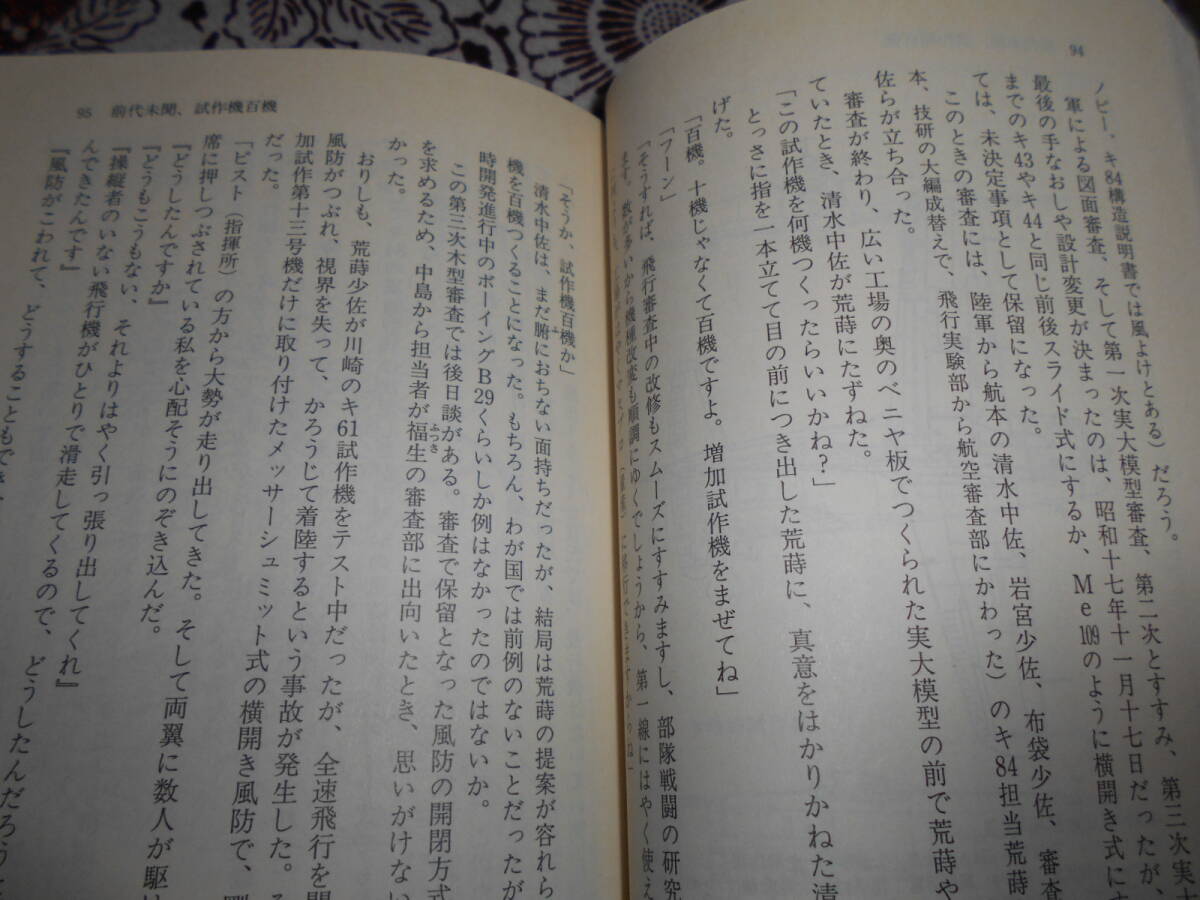 94
ノピー、キ84構造説明書では風よけとある）だろう。
軍による図面審査、そして第一次実大模型審査、第二次とすすみ、第三次実大
最後の手なおしや設計変更が決まったのは、昭和十七年十一月十七日だったが、
までのキ43やキ44と同じ前後スライド式にするか、Me109のように横開き式にす
ては、未決定事項として保留になった。
このときの審査には、陸軍から航本の清水中佐、岩宮少佐、布袋少佐、審
本、技研の大編成替えで、飛行実験部から航空審査部にかわった）のキ84担当荒蒔
佐らが立ち合った。
審査が終わり、広い工場の奥のベニヤ板でつくられた実大模型の前で荒蒔や
ていたとき、清水中佐が荒蒔にたずねた。
「この試作機を何機つくったらいいかね？」
とっさに指を一本立てて目の前につき出した荒蒔に、真意をはかりかねた清
げた。
「百機。十機じゃなくて百機ですよ。増加試作機をまぜてね」
「フーン」
「そうすれば、飛行審査中の改修もスムーズにすすみますし、部隊戦闘の研究
ます。数が多いから機種改変も順調にゆくでしょうから、第一線にはやく使え
に移行できますからね」
95 前代未聞、試作機百機
「そうか、試作機百機か」
清水中佐は、まだ腑におちない面持ちだったが、結局は荒蒔の提案が容れら
機を百機つくることになった。もちろん、わが国では前例のないことだったが
時開発進行中のボーイングB29くらいしか例はなかったのではないか。
この第三次木型審査では後日談がある。審査で保留となった風防の開閉方式
を求めるため、中島から担当者が福生の審査部に出向いたとき、思いがけない
かった。
おりしも、荒蒔少佐が川崎のキ61試作機をテスト中だったが、全速飛行を開
風防がつぶれ、視界を失って、かろうじて着陸するという事故が発生した。
加試作第十三号機だけに取り付けたメッサーシュミット式の横開き風防で、
だった。
「ピスト（指揮所）の方から大勢が走り出してきた。そして両翼に数人が駆け
席に押しつぶされている私を心配そうにのぞき込んだ。
『どうしたんですか』
『どうもこうもない、それよりはやく引っ張り出してくれ』
『操縦者のいない飛行機がひとりで滑走してくるので、どうしたんだろう
んできたんです』
『風防がこわれて、どうすることもでき